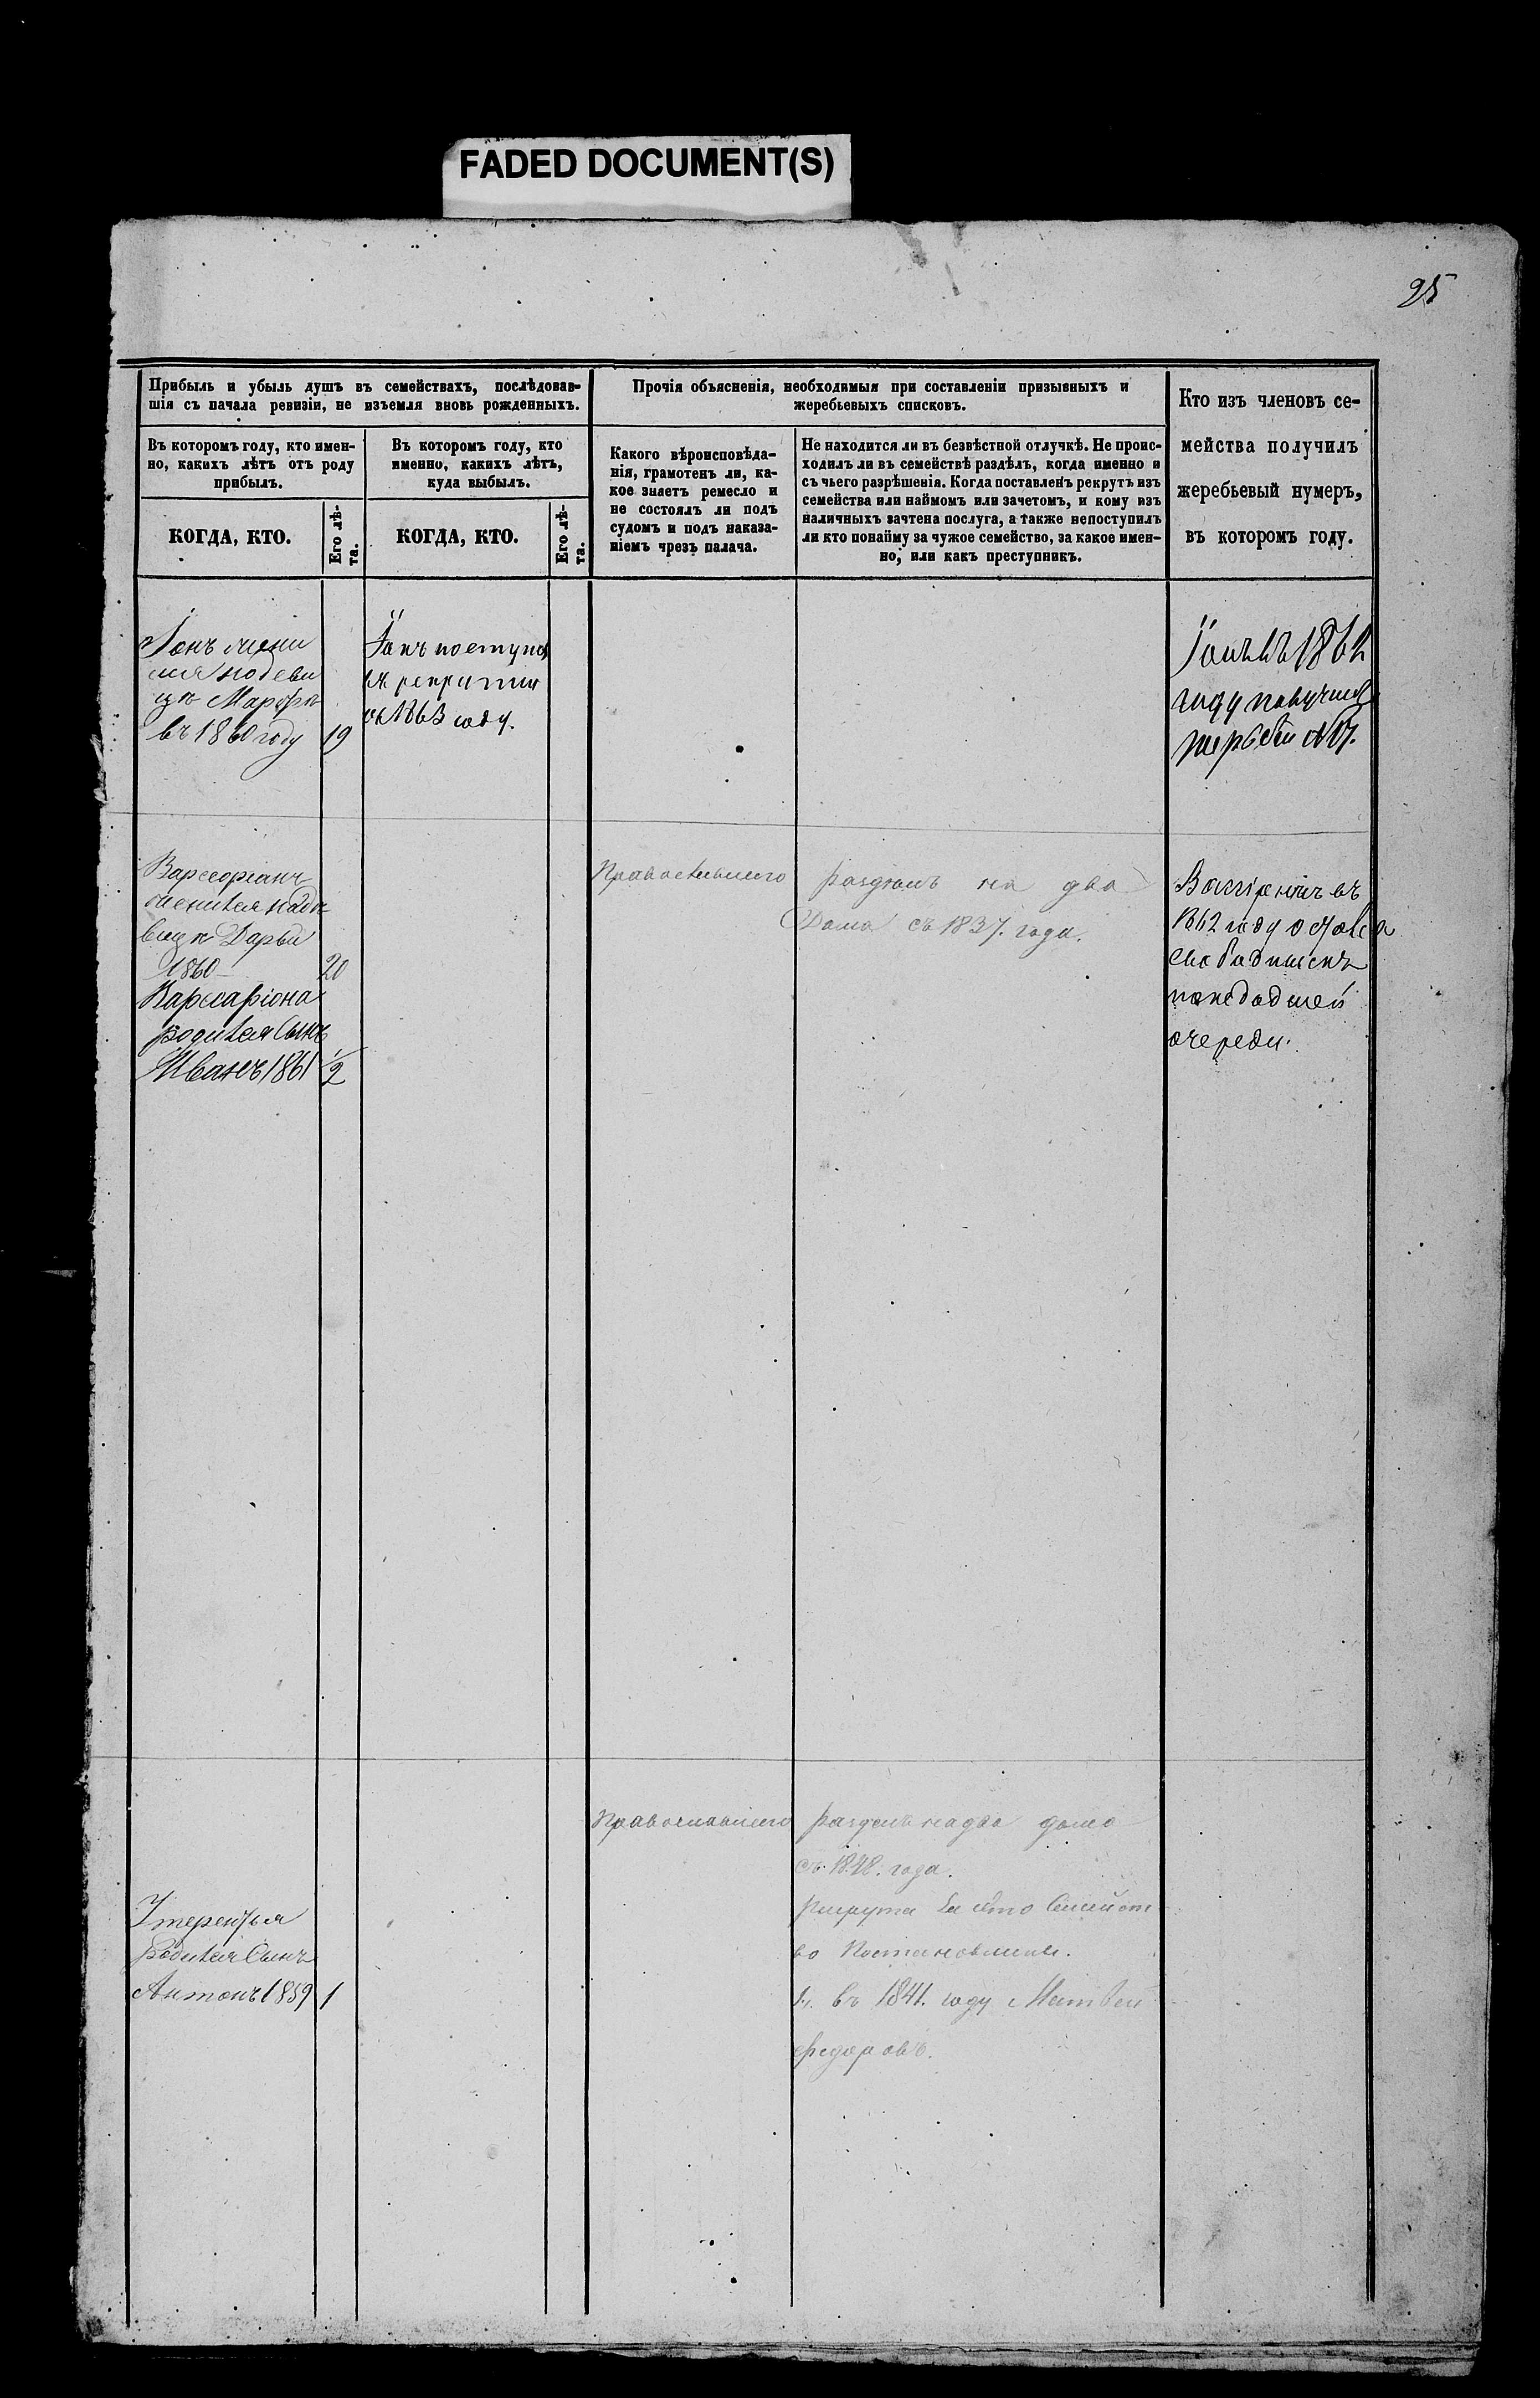 FADED DOCUMENT(S)
25
Прибыль и убыль душъ въ семействахъ, послѣдовав-
шія съ начала ревизіи, не изъемля вновь рожденныхъ.
Прочія объясненія, необходимыя при составленіи призывныхъ и
жеребьевыхъ списковъ.
Кто изъ членовъ се-
мейства получилъ
жеребьевый нумеръ,
въ которомъ году.
Въ которомъ году, кто имен-
но, какихъ лѣтъ отъ роду
прибылъ.
Въ которомъ году, кто
именно, какихъ лѣтъ,
куда выбылъ.
Какого вѣроисповѣда-
нія, грамотенъ ли, ка-
кое знаетъ ремесло и
не состоялъ ли подъ
судомъ и подъ наказа-
ніемъ чрезъ палача.
Не находится ли въ безвѣстной отлучкѣ. Не проис-
ходилъ ли въ семействѣ раздѣлъ, когда именно и
съ чьего разрѣшенія. Когда поставленъ рекрутъ изъ
семейства или наймомъ или зачетомъ, и кому изъ
наличныхъ зачтена послуга, а также непоступилъ
ли кто понайму за чужое семейство, за какое имен-
но, или какъ преступникъ.
КОГДА, КТО.
Его лѣ-
та.
КОГДА, КТО.
Его лѣ-
та.
цѣ Марфѣ
въ 1860 году 19
въ 1863 году.
1862
году получилъ
жеребій №
оженился на дѣ
вицѣ Дарьи
1860 20
родился Сынъ
Иванъ 1861 1/2
Православнаго
раздѣлъ на два
Дома съ 1837. года.
въ
1862 году остался
свободнымъ
очереди.
Православнаго
раздѣлъ на два дома
съ 1848. года.
Рекрута Семейст
во
1й. въ 1841. году Матвей
Федоровъ.
У терентья
родился Сынъ
Антонъ 1859 1